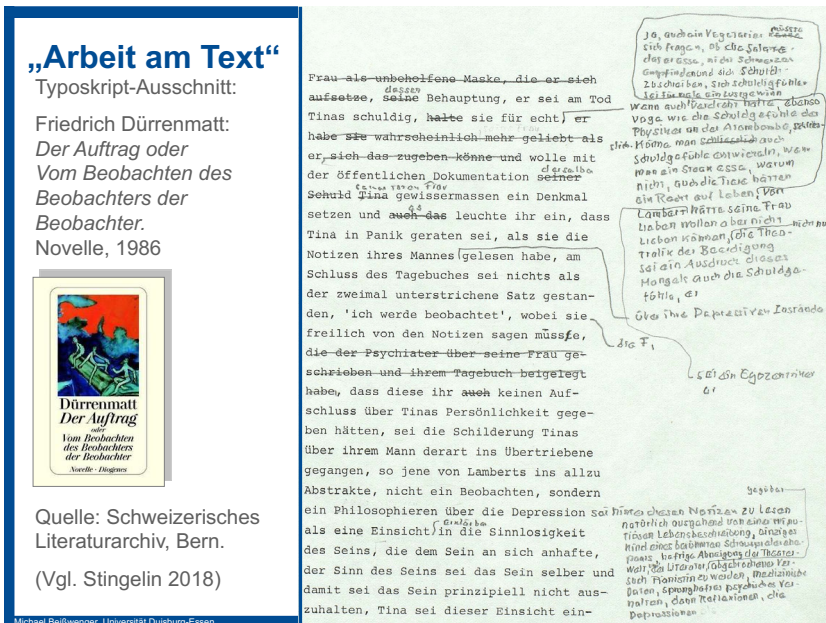 „Arbeit am Text“
Typoskript-Ausschnitt:
Friedrich Dürrenmatt:
Der Auftrag oder
Vom Beobachten des
Beobachters der
Beobachter.
Novelle, 1986
Dürrenmatt
Der Auftrag
oder
Vom Beobachten
des Beobachters
der Beobachter
Novelle · Diogenes
Quelle: Schweizerisches
Literaturarchiv, Bern.
(Vgl. Stingelin 2018)
Michael Beißwenger, Universität Duisburg-Essen
Frau als unbeholfene Maske, die er sich
dessen
aufsetze, seine Behauptung, er sei am Tod
Tinas schuldig, halte sie für echt, er
habe sie wahrscheinlich mehr geliebt als
er sich das zugeben könne und wolle mit
derselbe
der öffentlichen Dokumentation seiner
Schuld Tina gewissermassen ein Denkmal
es
setzen und auch das leuchte ihr ein, dass
Tina in Panik geraten sei, als sie die
Notizen ihres Mannes gelesen habe, am
Schluss des Tagebuches sei nichts als
der zweimal unterstrichene Satz gestan-
den, 'ich werde beobachtet', wobei sie
freilich von den Notizen sagen müsse,
die der Psychiater über seine Frau ge-
schrieben und ihrem Tagebuch beigelegt
habe, dass diese ihr auch keinen Auf-
schluss über Tinas Persönlichkeit gege-
ben hätten, sei die Schilderung Tinas
über ihrem Mann derart ins Übertriebene
gegangen, so jene von Lamberts ins allzu
Abstrakte, nicht ein Beobachten, sondern
ein Philosophieren über die Depression sei
als eine Einsicht in die Sinnlosigkeit
des Seins, die dem Sein an sich anhafte,
der Sinn des Seins sei das Sein selber und
damit sei das Sein prinzipiell nicht aus-
zuhalten, Tina sei dieser Einsicht ein-
Ja, auch ein Vegetarier müsste
sich fragen, ob die Salate
das er esse, nicht Schmerzen
wenn auch verdreht hätte, ebenso
vage wie die Schuldgefühle der
Physiker an der Atombombe,
könne man schliesslich auch
Schuldgefühle entwickeln, wenn
man ein Steak esse, warum
nicht, auch die Tiere hätten
ein Recht auf Leben, von
Lambert hätte seine Frau
lieben wollen aber nicht
lieben können, die Thea-
tralik der Beerdigung
sei ein Ausdruck dieses
Mangels auch die Schuldge-
fühle, er
über ihre Depressiven Zustände
die F,
sei ein Egozentriker
er
gegeben
hinter diesen Notizen zu lesen
natürlich ausgehend von einer minu-
tiösen Lebensbeschreibung, einziges
Kind eines berühmten
heftige Abneigung der Theater-
welt, abgebrochener Ver-
such Pianistin zu werden, medizinische
Daten, sprunghaftes psychisches Ver-
halten, dann Reflexionen, die
Depressionen